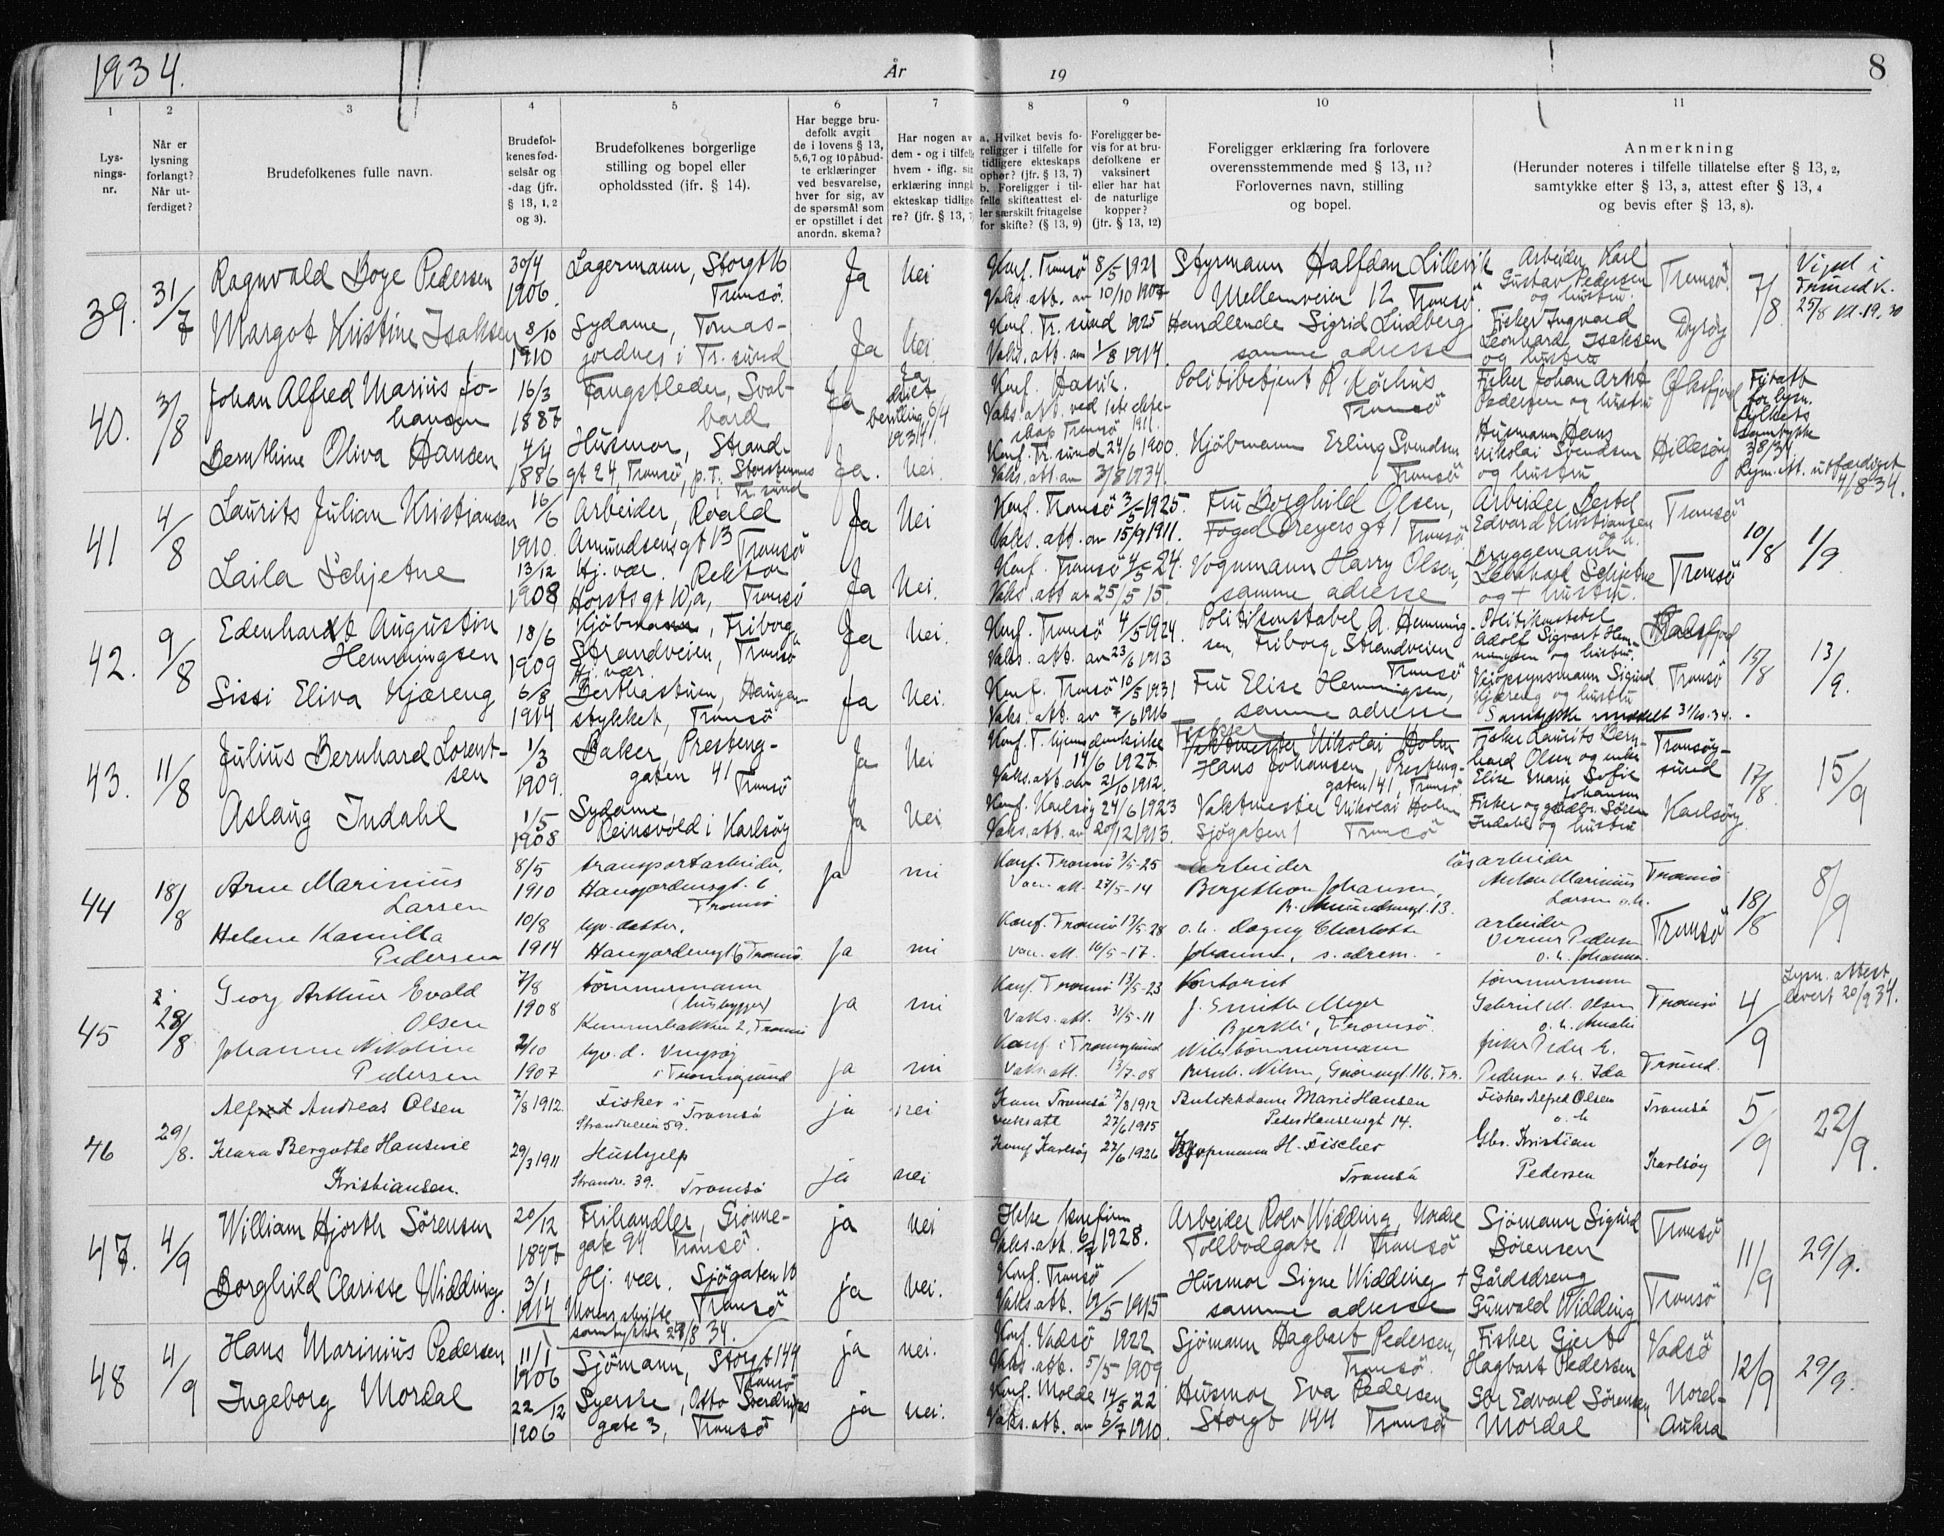 1934.
År
19
8
1
2
3
4
5
6
7
8
9
10
11
Lys-
nings-
nr.
Når er
lysning
forlangt?
Når ut-
ferdiget?
Brudefolkenes fulle navn.
Brudefol-
kenes fød-
selsår og
-dag (jfr.
§ 13, 1, 2
og 3).
Brudefolkenes borgerlige
stilling og bopel eller
opholdssted (jfr. § 14).
Har begge bru-
defolk avgit
de i lovens § 13,
5,6,7 og 10 påbud-
te erklæringer
ved besvarelse,
hver for sig, av
de spørsmål som
er opstillet i det
anordn. skema?
Har nogen av
dem - og i tilfelle
hvem - iflg. sin
erklæring inngå
ekteskap tidlige
re? (jfr. § 13, 7
a. Hvilket bevis fo-
religger i tilfelle for
tidligere ekteskaps
ophør? (jfr. § 13, 7)
b. Foreligger i til-
felle skifteattest el-
ler særskilt fritagelse
for skifte? (§ 13, 9)
Foreligger be-
vis for at bru-
defolkene er
vaksinert
eller har hat
de naturlige
kopper?
(jfr. § 13, 12)
Foreligger erklæring fra forlovere
overensstemmende med § 13, 11?
Forlovernes navn, stilling
og bopel.
Anmerkning
(Herunder noteres i tilfelle tillatelse efter § 13, 2,
samtykke efter § 13, 3, attest efter § 13, 4
og bevis efter § 13, 8).
39.
31/7
Ragnvald Boye Pedersen
30/4
1906.
Lagermann, Storgt 16
Tromsö.
Ja
Nei
Konf. Tromsö 8/5 1921
Vaks. att. av 10/10 1907
Styrmann Halfdan Lillevik
Mellemveien 12 Tromsö
Arbeider Karl
Gustav Pedersen
og hustru.
Tromsö
7/8
Viet i
Trsund k.
25/8 kl. 19.30
Margot Kristine Isaksen
8/10
1910
Sydame, Tomas-
jordnes i Tr. sund
Ja
Nei
Konf. Tr. sund 1925
Vaks. att. av 1/8 1914.
Handlende Sigrid Lindberg
samme adresse
Fisker Ingvard
Leonhard Isaksen
og hustru
Dyröy
40.
3/8
Johan Alfred Marius Jo-
hansen
16/3
1887
Fangstleder, Sval-
bard
Ja
Ja
bevilling 6/4
1934.
Konf. Hasvik.
Vaks. att. ved
Tromsö 1911.
Politibetjent R. Körhus
Tromsö
Fisker Johan Arnt
Pedersen og hustru
Öksfjord
for lysn.
Fylkets
samtykke
3/8 34
Lysn. att. utferdiget
4/8 34.
Bernthine Oliva Hansen
4/4
1886
Husmor, Strand-
gt 24, Tromsö, p.t. Storsteinnes
Tr. sund
Ja.
Nei.
Konf. Tr. sund 24/6 1900.
Vaks. att. av 3/8 1934.
Kjöbmann Erling Svendsen
Tromsö
Husmann Hans
Nikolai Svendsen
og hustru
Hillesöy
41
4/8
Laurits Julian Kristiansen
16/6
1910.
Arbeider, Roald
Amundsensgt 13
Tromsö
Ja
Nei
Konf. Tromsö 3/5-1925.
Vaks. att. av 15/9 1911.
Fru Borghild Olsen,
Foged Dreyersgt 1 Tromsö
Arbeider Bertel
Edvard Kristiansen
og h.
Tromsö
10/8
1/9
Laila Schjetne
13/12
1908
Hj. vær. Rektor
Horstsgt 10,a, Tromsö
Ja
Nei.
Konf. Tromsö 4/5-24.
Vaks. att av 25/5 15.
Vognmann Harry Olsen,
samme adresse
Bryggemann
Leonhard Schjetne
og + hustru.
Tromsö
42.
9/8
Edenhardt Augustin
Hemmingsen
18/6
1909
Kjöbmann, Friborg
Strandveien, Tromsö
Ja
Nei.
Konf. Tromsö 4/5 1924.
Vaks. att. av 23/6 1913
Politikonstabel A. Hemming-
sen, Friborg, Strandveien
Tromsö
Politikonstabel
Adolf Sigvart Hem-
mingsen og hustru.
Balsfjord
15/8
13/9.
Sissi Eliva Kjæreng
6/8
1914
Hj. vær.
Berthastuen, Haugen
stykket, Tromsö
Ja
Nei.
Konf. Tromsö 10/5 1931
Vaks. att. av 7/6 1916
Fru Elise Hemmingsen,
samme adresse
Kjöpsynsmann Sigurd
Kjæreng og hustru
Tromsö
Samtykke meddelt 31/10. 34.
43.
11/8
Julius Bernhard Lorent-
sen
1/3
1909.
Baker, Presteng-
gaten 41
Tromsö
Ja
Nei
Konf. T.
14/6 1927
Vaks. att. av 21/10 1912.
Fisker
Vaktmester Nikolai Holm
Hans Johansen, Presteng-
gaten 41, Tromsö
Fisker Laurits Bern-
hard Olsen og enke
Elise Marie Sofie
Johansen
Tromsöy-
sund
17/8.
15/9
Aslaug Indahl
1/5
1908
Sydame
Reinsvold i Karlsöy
Ja
Nei
Konf. Karlsöy 24/6 1923
Vaks. att. av 20/12 1913.
Vaktmester Nikolai Holm
Sjögaten 1 Tromsö
Fisker og gårdbr. Sören
Indahl og hustru
Karlsöy.
44
18/8
Arne Marinius
Larsen
8/5
1910
transportarbeider,
Haugardensgt. 6
Tromsö
Ja
nei
Konf. Tromsö 3/5-25
Vac. att. 27/5-14
Arbeider
Bergethon Johansen,
R. Amundsensgt. 13.
løsarbeider
Anton Marinius
Larsen o.h.
Tromsö
18/8
8/9
Helene Kamilla
Pedersen
10/8
1914
hjv. datter.
Haugardensgt 6 Tromsö.
Ja
nei
Konf. Tromsö 17/5-28
Vac. att. 16/5-17.
o.h. Dagny Charlotte
Johansen, s. adresse.
arbeider
Verner Pedersen
o.h. Johanna.
Tromsö
45
28/8
Georg Arthur Evald
Olsen
7/8
1908
tömmermann
(husbygger)
Kemnerbakken 2, Tromsö
ja
nei
Konf. Tromsö 13/5-23
Vaks. att. 31/5-11
Kontorist
J. Smith Meyer
Bjerkli, Tromsö.
tömmermann
Gabriel M. Olsen
o.h. Amalie
Tromsö
4/9
Lysn. attest
levert 20/9 34.
Johanne Nikoline
Pedersen
2/10
1907
hjv. d. Vengsöy
i Tromsöysund
ja
nei
Konf. i Tromsöysund
Vaks att. 13/7-08
Nils tömmermann
Bernh. Nilsen, Grönnegt 116. Tr.
fisker Peder E.
Pedersen o.h. Ida
Trsund.
46
29/8.
Alfred Andreas Olsen
7/8 1912.
Fisker i
Strandveien 59. Tromsö
ja
nei
Konf Tromsö 7/8 1912
vaks att 22/6 1915
Butikkdame Marie Hansen
Peder Hansensgt 14.
Fisker Alfred Olsen
o.h
Tromsö
5/9
22/9.
Klara Bergotte Hansine
Kristiansen.
29/3 1911
Hushjelp
Strandv. 39. Tromsö
ja
nei
Konf Karlsöy 27/6 1926
Kjøpmann H. Fischer
Tromsö
Gbr. Kristian
Pedersen
Karlsöy
47.
4/9
William Hjorth Sörensen
20/12
1897
Frihandler, Grönne-
gate 94 Tromsö.
ja
nei
Ikke konfirm.
Vaks. att. 6/7 1928.
Arbeider Rolv Widding, Nordre
Tollbodgate 11 Tromsö
Sjömann Sigurd
Sörensen
Tromsö
11/9
29/9.
Borghild Clarisse Widding.
3/1
1914
Hj. vær. Sjögaten 10
Tromsö
Morens skriftl.
samtykke 28/8 34.
ja
nei.
Konf. Tromsö /
Vaks. att. 19/5 1915
Husmor Signe Widding
samme adresse
+ Gårdsdreng
Gunvald Widding
Tromsö
48
4/9
Hans Marinius Pedersen
11/1
1906
Sjömann, Storgt 144
Tromsö
ja
nei.
Konf. Vadsö 1922
Vaks. att. 5/5 1909
Sjömann Dagbart Pedersen,
Tromsö.
Fisker Gjert
Hagbart Pedersen
Vadsö
12/9
29/9.
Ingeborg Mordal
22/12
1906
Syerske, Otto Sverdrups
gate 3, Tromsö
ja
nei.
Konf. Molde 14/5 22
Vaks. att. av 6/7 1910.
Husmor Eva Pedersen
Storgt 144 Tromsö
Gbr Edvard Sörensen
Mordal
Nord-
Aukra